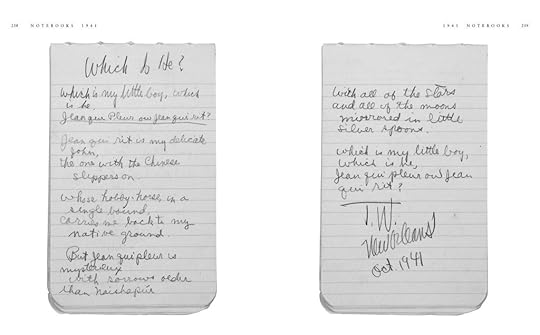 238 NOTEBOOKS 1941
Which Is He?
Which is my little boy, which
is he,
Jean qui Pleur ou Jean qui rit?
Jean qui rit is my delicate
John,
the one with the Chinese
slippers on.
Whose hobby-horse in a
single bound,
carries me back to my
native ground.
But Jean qui pleur is
mysterieux
with sorrows older
than Naishapur
1941 NOTEBOOKS 239
With all of the stars
and all of the moons
mirrored in little
silver spoons.
Which is my little boy,
which is he,
Jean qui pleur ou Jean
qui rit?
T. W.
New Orleans
Oct. 1941